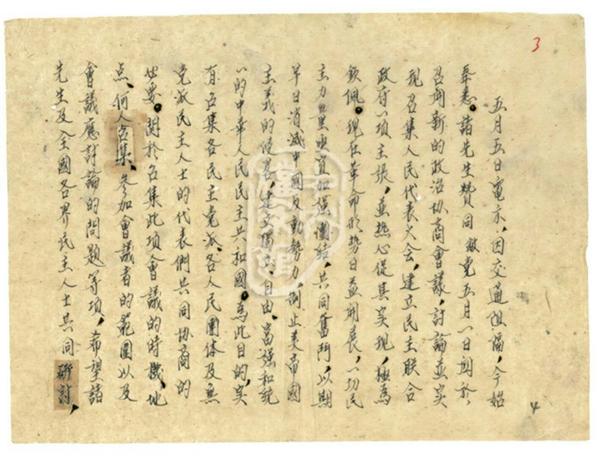 3
五月五日電示，因交通阻隔，今始
奉悉。諸先生贊同敝党五月一日関於
召開新的政治协商會議，討論並实
現召集人民代表大会，建立民主联合
政府一項主張，並热心促其实現，極為
钦佩。現在革命形势日益開展，一切民
主力量亟宜加强團結，共同奮鬥，以期
早日消滅中國反動势力，制止美帝國
主義的侵畧，建立獨立、自由、富强和統
一的中华人民民主共和國。為此目的，实
有召集各民主党派、各人民團体及無
党派民主人士的代表們共同协商的
必要。関於召集此項會議的時機、地
点、何人召集、參加會議者的範圍以及
會議應討論的問題等項，希望諸
先生及全國各界民主人士共同研討，
4